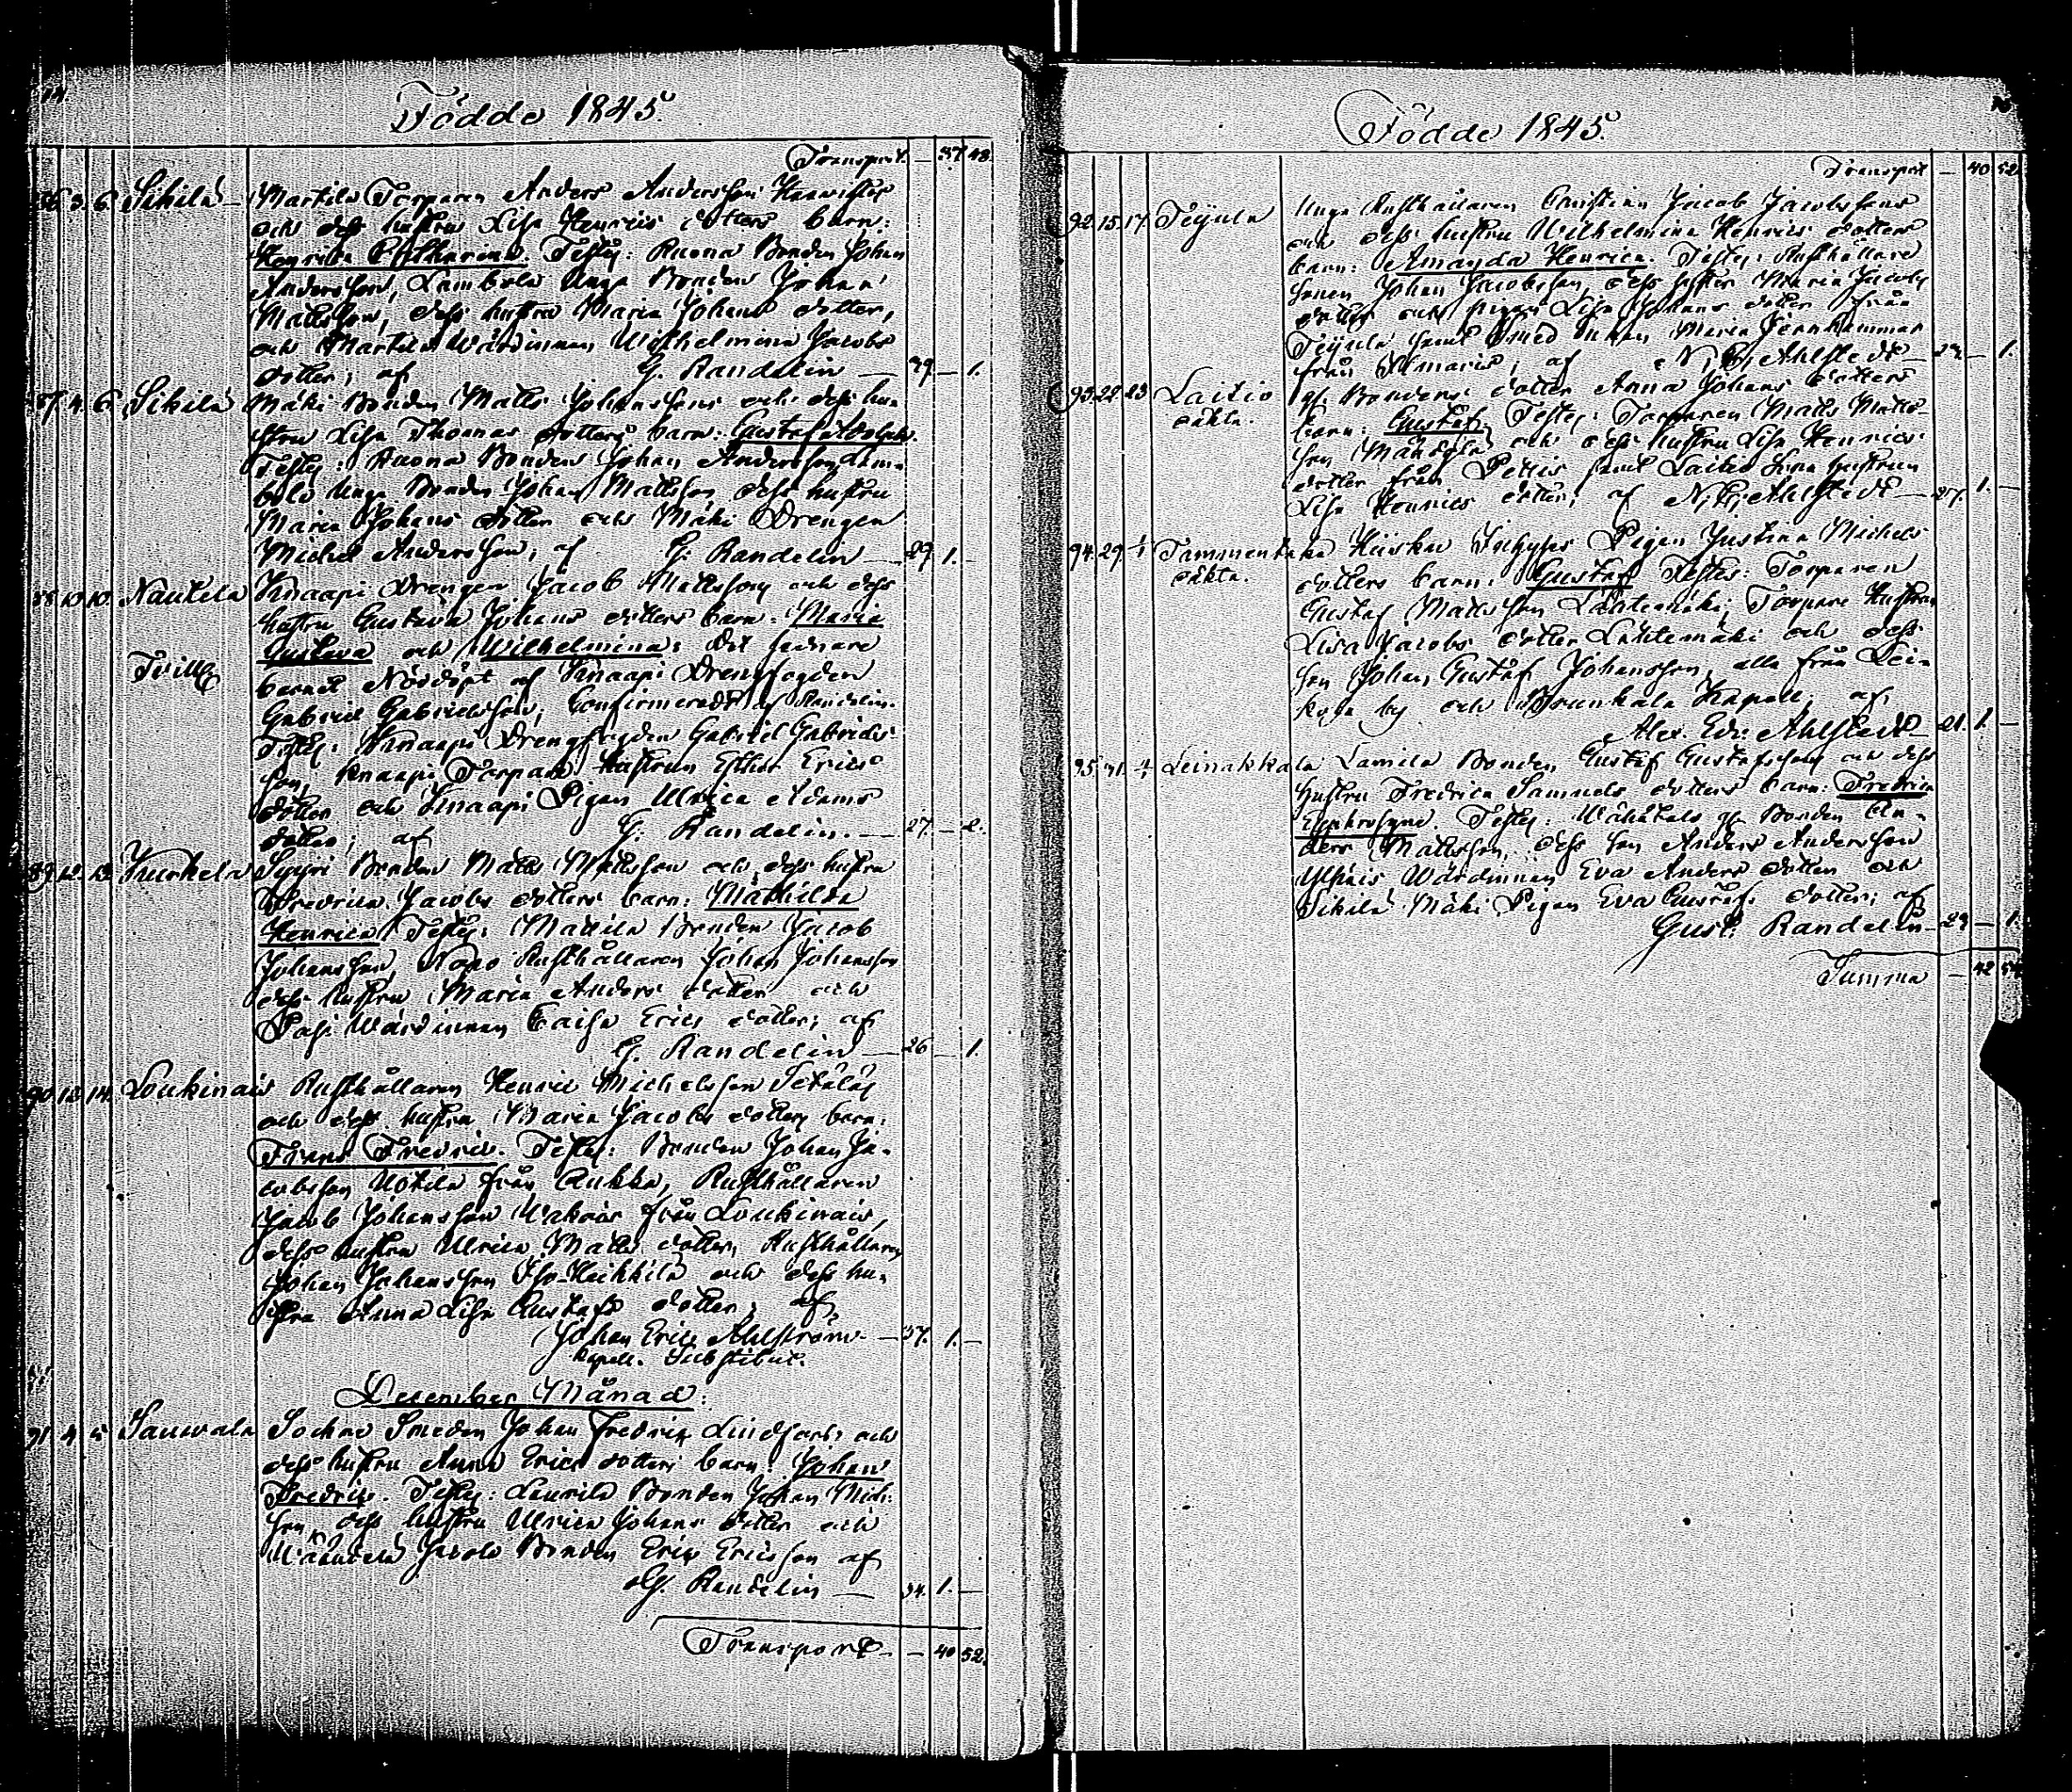 Födde 1845.
Transport. — 37 48.
86 3. 6. Sikilä Martila Torparen Anders Andersson
och dess hustru Lisa Henrics dotters barn:
Henrica Catharina. Testes: Ruona Bonden Johan
Andersson, Lambola Unga Bonden Johan
Mattsson, dess hustru Maria Johans dotter,
och Martila Wärdinnan Wilhelmina Jacobs
dotter; af G. Randelin — 29. — 1.
87 4. 6. Sikilä Mäki Bonden Matts Johanssons och dess hu-
stru Lisa Thomas dotters barn: Gustaf Adolph.
Testes: Ruona Bonden Johan Andersson, Lam-
bola Unga Bonden Johan Mattsson dess hustru
Maria Johans dotter och Mäki Drengen
Michel Andersson; af G. Randelin — 29. 1. —
88 10. 10. Nautela Knaapi Drengen Jacob Mattsson och dess
hustru Gustava Johans dotters barn: Maria
Gustava och Wilhelmina: det senare
Tvill.
barnet Nöddöpt af Knaapi Drengfogden
Gabriel Gabrielsson; Confirmeradt af Randelin.
Testes: Knaapi Drengfogden Gabriel Gabriels-
son, Knaapi Torpare Hustrun Esther Erics
dotter och Knaapi Pigan Ulrica Adams
dotter; af G. Randelin. — 27. — 2.
89 12. 13. Kurkela Syyri Bonden Matts Mattsson och dess hustru
Fredrica Jacobs dotters barn: Mathilda
Henrica. Testes: Mattila Bonden Jacob
Johansson, Rusthållaren Johan Johansson
dess hustru Maria Anders dotter och
Pasi Wärdinnan Caisa Erics dotter; af
G. Randelin — 26 — 1.
90 12. 14. Loukinais Rusthållaren Henric Michelsson Setälä
och dess hustru Maria Jacobs dotters barn:
Frans Fredric. Testes: Bonden Johan Ja-
cobsson Uotila från Rukka, Rusthållaren
Jacob Johansson från Loukinais,
dess hustru Ulrica Matts dotter, Rusthållaren
Johan Johansson Iso-Heikkilä och dess hu-
stru Anna Lisa Gustafs dotter; af
Johan Eric Ahlström — 37. 1. —
Kapell. Substitut.
December Månad:
91 4. 5 Sauvala Sockne Smeden Johan Fredric och
dess hustru Anna Erics dotters barn: Johan
Fredric. Testes: Laurila Bonden Johan Mich.
son, dess hustru Ulrica Johans dotter och
Jacola Bonden Eric Ericsson af
G. Randelin — 34. 1. —
Transport — — 40 52.
Födde 1845.
Transport — 40 52.
92. 15. 17. Teijula Unga Rusthållaren Christian Jacob Jacobssons
och dess hustru Wilhelmina Henrics dotters
barn: Amanda Henrica. Testes: Rusthållare
sonen Johan Jacobsson, dess syster Maria Jacobs
dotter och pigan Lisa Johans dotter från
Teijula samt Maria Jernhammar
från; af N. E. Ahlstedt — — 1.
93. 22. 23 Laitio gl. Bondens dotter Anna Johans dotters
oäkta. barn: Gustaf, Testes: Torparen Matts Matts-
son och dess hustru Lisa Henrics
dotter från samt Laitio hustrun
Lisa Henrics dotter; af N. E. Ahlstedt — 27. 1. —
94. 29. 1/1 Tammentaka Hiiska Inhyses Pigan Justina Michels
oäkta. dotters barn: Gustaf Testes: Torparen
Gustaf Mattsson Lähtemäki, Torpare Hustrun
Lisa Jacobs dotter Lähtemäki och dess
son Johan Gustaf Johansson, alla från Lei-
by och Brunkala Kapell; af
Alex. Edv. Ahlstedt 21. 1. —
95. 31. Leinakkala Lamila Bonden Gustaf Gustafsson och dess
hustru Fredrica Samuels dotters barn: Fredrica
Euphrosyne. Testes: gl. Bonden An-
ders Mattsson, dess son Anders Andersson
Wärdinnan Eva Anders dotter och
Sikilä Mäki Pigan Eva Gustafs dotter; af
Gust. Randelin — 29 — 1.
Summa — 42 54